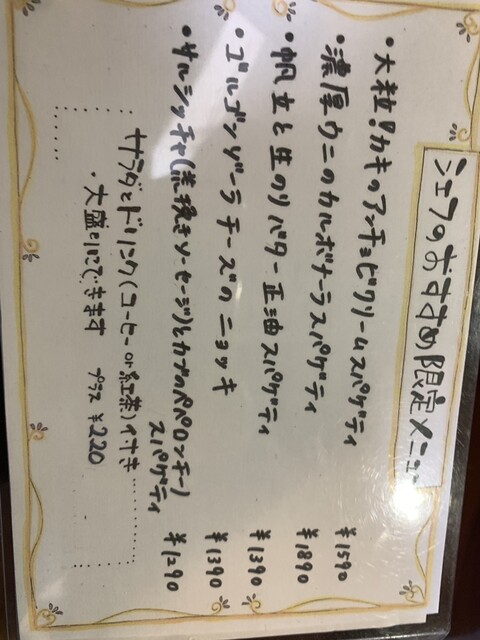 シェフのおすすめ限定メニュー
・大粒!カキのアンチョビクリームスパゲティ ¥1590
・濃厚ウニのカルボナーラスパゲティ ¥1890
・帆立と生のりバター正油スパゲティ ¥1390
・ゴルゴンゾーラチーズのニョッキ ¥1390
・サルシッチャ(荒挽きソーセージ)とカブのペペロンチーノ
スパゲティ ¥1290
サラダとドリンク(コーヒーor紅茶)付き
・大盛りにできます プラス ¥220